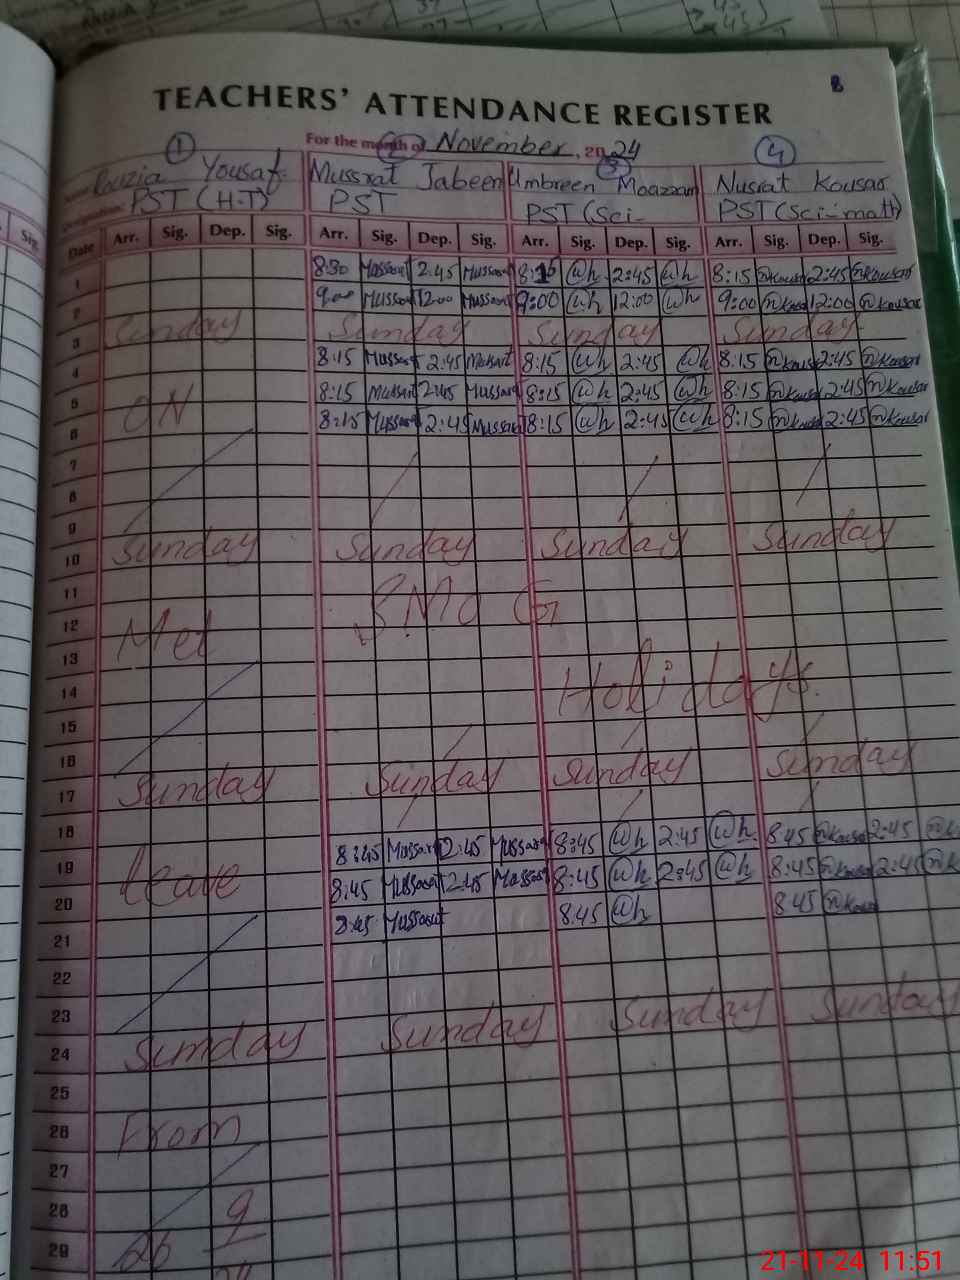 8
TEACHERS' ATTENDANCE REGISTER
For the month of November, 2024
1 2 3 4
Fouzia Yousaf Mussrat Jabeen Umbreen Moazzam Nusrat Kousar
PST (H.T) PST PST (Sci- PST (Sci-math)
Date Arr. Sig. Dep. Sig. Arr. Sig. Dep. Sig. Arr. Sig. Dep. Sig. Arr. Sig. Dep. Sig.
1 8:30 Mussarat 2:45 Mussarat 8:15 2:45 8:15 Kousar 2:45 Kousar
2 9:00 Mussarat 12:00 Mussarat 9:00 12:00 9:00 Kousar 12:00 Kousar
3 Sunday Sunday Sunday Sunday
4 8:15 Mussarat 2:45 Mussarat 8:15 2:45 8:15 Kousar 2:45 Kousar
5 ON 8:15 Mussarat 2:45 Mussarat 8:15 2:45 8:15 Kousar 2:45 Kousar
6 8:15 Mussarat 2:45 Mussarat 8:15 2:45 8:15 Kousar 2:45 Kousar
7
8
9
10 Sunday Sunday Sunday Sunday
11
12 SMOG
13 Met
14 Holidays.
15
16
17 Sunday Sunday Sunday Sunday
18
19 8:45 Mussarat 2:45 Mussarat 8:45 2:45 8:45 Kousar 2:45
20 Leave 8:45 Mussarat 2:45 Mussarat 8:45 2:45 8:45 Kousar 2:45
21 8:45 Mussarat 8:45 8:45 Kousar
22
23
24 Sunday Sunday Sunday Sunday
25
26 From
27
28 9
29 26
21-11-24 11:51